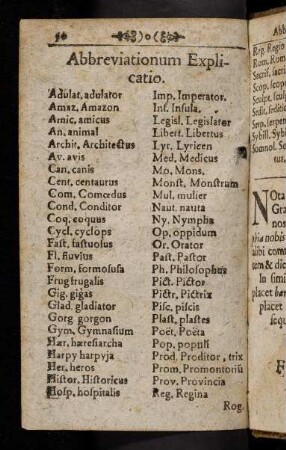 50
Abbreviationum Expli-
catio.
Adulat. adulator
Amaz. Amazon
Amic. amicus
An. animal
Archit. Architectus
Av. avis
Can. canis
Cent. centaurus
Com. Comœdus
Cond. Conditor
Coq. coquus
Cycl. cyclops
Fast. fastuosus
Fl. fluvius
Form. formosusa
Frug frugalis
Gig. gigas
Glad. gladiator
Gorg gorgon
Gym. Gymnasium
Hær. hæresiarcha
Harpy harpyja
Her. heros
Histor. Historicus
Hosp. hospitalis
Imp. Imperator.
Ins. Insula.
Legisl. Legislater
Libert. Libertus
Lyr. Lyricen
Med. Medicus
Mo. Mons.
Monst. Monstrum
Mul. mulier
Naut. nauta
Ny. Nympha
Op. oppidum
Or. Orator
Past. Pastor
Ph. Philosophus
Pict. Pictor
Pictr. Pictrix
Pisc. piscis
Plast. plastes
Poët. Poëta
Pop. populi
Prod. Proditor, trix
Prom. Promontorium
Prov. Provincia
Reg. Regina
Rog.